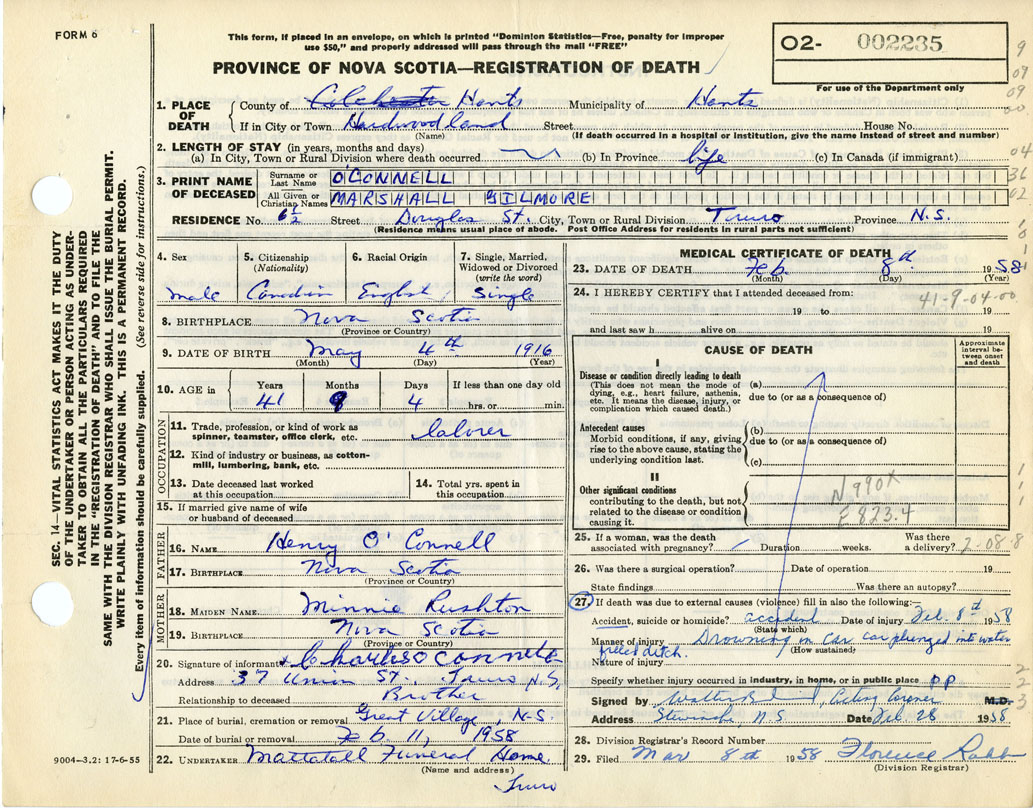 FORM 6
This form, if placed in an envelope, on which is printed "Dominion Statistics—Free, penalty for improper
use $50," and properly addressed will pass through the mail "FREE"
PROVINCE OF NOVA SCOTIA—REGISTRATION OF DEATH
O2- 002235
For use of the Department only
SEC. 14—VITAL STATISTICS ACT MAKES IT THE DUTY
OF THE UNDERTAKER OR PERSON ACTING AS UNDER-
TAKER TO OBTAIN ALL THE PARTICULARS REQUIRED
IN THE "REGISTRATION OF DEATH" AND TO FILE THE
SAME WITH THE DIVISION REGISTRAR WHO SHALL ISSUE THE BURIAL PERMIT.
WRITE PLAINLY WITH UNFADING INK. THIS IS A PERMANENT RECORD.
Every item of information should be carefully supplied. (See reverse side for instructions.)
1. PLACE OF DEATH
County of Colchester Hants Municipality of Hants
If in City or Town Hardwoodland Street House No.
(Name) (If death occurred in a hospital or institution, give the name instead of street and number)
2. LENGTH OF STAY (in years, months and days)
(a) In City, Town or Rural Division where death occurred (b) In Province life (c) In Canada (if immigrant)
3. PRINT NAME OF DECEASED
Surname or Last Name O'CONNELL
All Given or Christian Names MARSHALL GILMORE
RESIDENCE No. 6½ Street Douglas St. City, Town or Rural Division Truro Province N.S.
(Residence means usual place of abode. Post Office Address for residents in rural parts not sufficient)
4. Sex 5. Citizenship (Nationality) 6. Racial Origin 7. Single, Married, Widowed or Divorced (write the word)
male Canadian English Single
8. BIRTHPLACE Nova Scotia
(Province or Country)
9. DATE OF BIRTH May 4th 1916
(Month) (Day) (Year)
10. AGE in Years Months Days If less than one day old
41 9 4 hrs. or min.
OCCUPATION
11. Trade, profession or kind of work as spinner, teamster, office clerk, etc. laborer
12. Kind of industry or business, as cotton-mill, lumbering, bank, etc.
13. Date deceased last worked at this occupation
14. Total yrs. spent in this occupation
15. If married give name of wife or husband of deceased
FATHER
16. NAME Henry O'Connell
17. BIRTHPLACE Nova Scotia
(Province or Country)
MOTHER
18. MAIDEN NAME Minnie Rushton
19. BIRTHPLACE Nova Scotia
(Province or Country)
20. Signature of informant x Charles O Connell
Address 37 Union St. Truro N.S.
Relationship to deceased Brother
21. Place of burial, cremation or removal Great Village, N.S.
Date of burial or removal Feb. 11, 1958
22. UNDERTAKER Mattatall Funeral Home
(Name and address)
Truro
9004—3.2: 17-6-55
MEDICAL CERTIFICATE OF DEATH
23. DATE OF DEATH Feb. 8th 1958
(Month) (Day) (Year)
24. I HEREBY CERTIFY that I attended deceased from:
41-9-04-00
19 to 19
and last saw h alive on 19
CAUSE OF DEATH
Approximate interval between onset and death
I
Disease or condition directly leading to death
(This does not mean the mode of dying, e.g., heart failure, asthenia, etc. It means the disease, injury, or complication which caused death.)
(a)
due to (or as a consequence of)
Antecedent causes
Morbid conditions, if any, giving rise to the above cause, stating the underlying condition last.
(b)
due to (or as a consequence of)
(c)
II
Other significant conditions
contributing to the death, but not related to the disease or condition causing it.
N990X
E823.4
25. If a woman, was the death associated with pregnancy? Duration weeks. Was there a delivery?
2-08-8
26. Was there a surgical operation? Date of operation 19
State findings Was there an autopsy?
27. If death was due to external causes (violence) fill in also the following:—
Accident, suicide or homicide? accident Date of injury Feb. 8th 1958
(State which)
Manner of injury Drowning in car. car plunged into water
filled ditch. (How sustained)
Nature of injury
Specify whether injury occurred in industry, in home, or in public place P.P
Signed by Acting Coroner M.D.
Address Stewiacke N.S. Date Feb. 28 1958
28. Division Registrar's Record Number
29. Filed Mar 8th 1958 Florence Rabb
(Division Registrar)